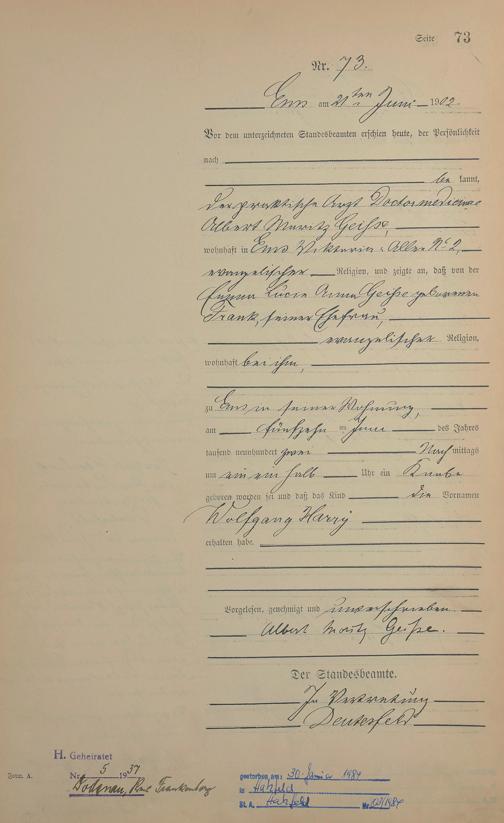 Seite 73
Nr. 73.
Ems am 21ten Juni 1902.
Vor dem unterzeichneten Standesbeamten erschien heute, der Persönlichkeit
nach
be kannt,
der praktische Arzt Doctor medicinae
Albert Moritz Geiße,
wohnhaft in Ems Viktoria-Allee No 2,
evangelischer Religion, und zeigte an, daß von der
Emma Lucie Anna Geiße geborenen
Frank, seiner Ehefrau,
evangelischer Religion,
wohnhaft bei ihm,
zu Ems in seiner Wohnung,
am fünfzehn ten Juni des Jahres
tausend neunhundert zwei Nach mittags
um ein ein halb Uhr ein Knabe
geboren worden sei und daß das Kind die Vornamen
Wolfgang Harry
erhalten habe.
Vorgelesen, genehmigt und unterschrieben
Albert Moritz Geiße.
Der Standesbeamte.
In Vertretung
H. Geheiratet
Nr. 5 1937
Dodenau, Frankenberg
Form. A.
gestorben am: 30. Januar 1984
in Hatzfeld
St. A. Hatzfeld